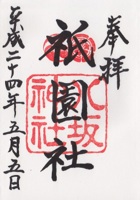 奉拝
祇園社
八坂神社
平成二十四年五月五日